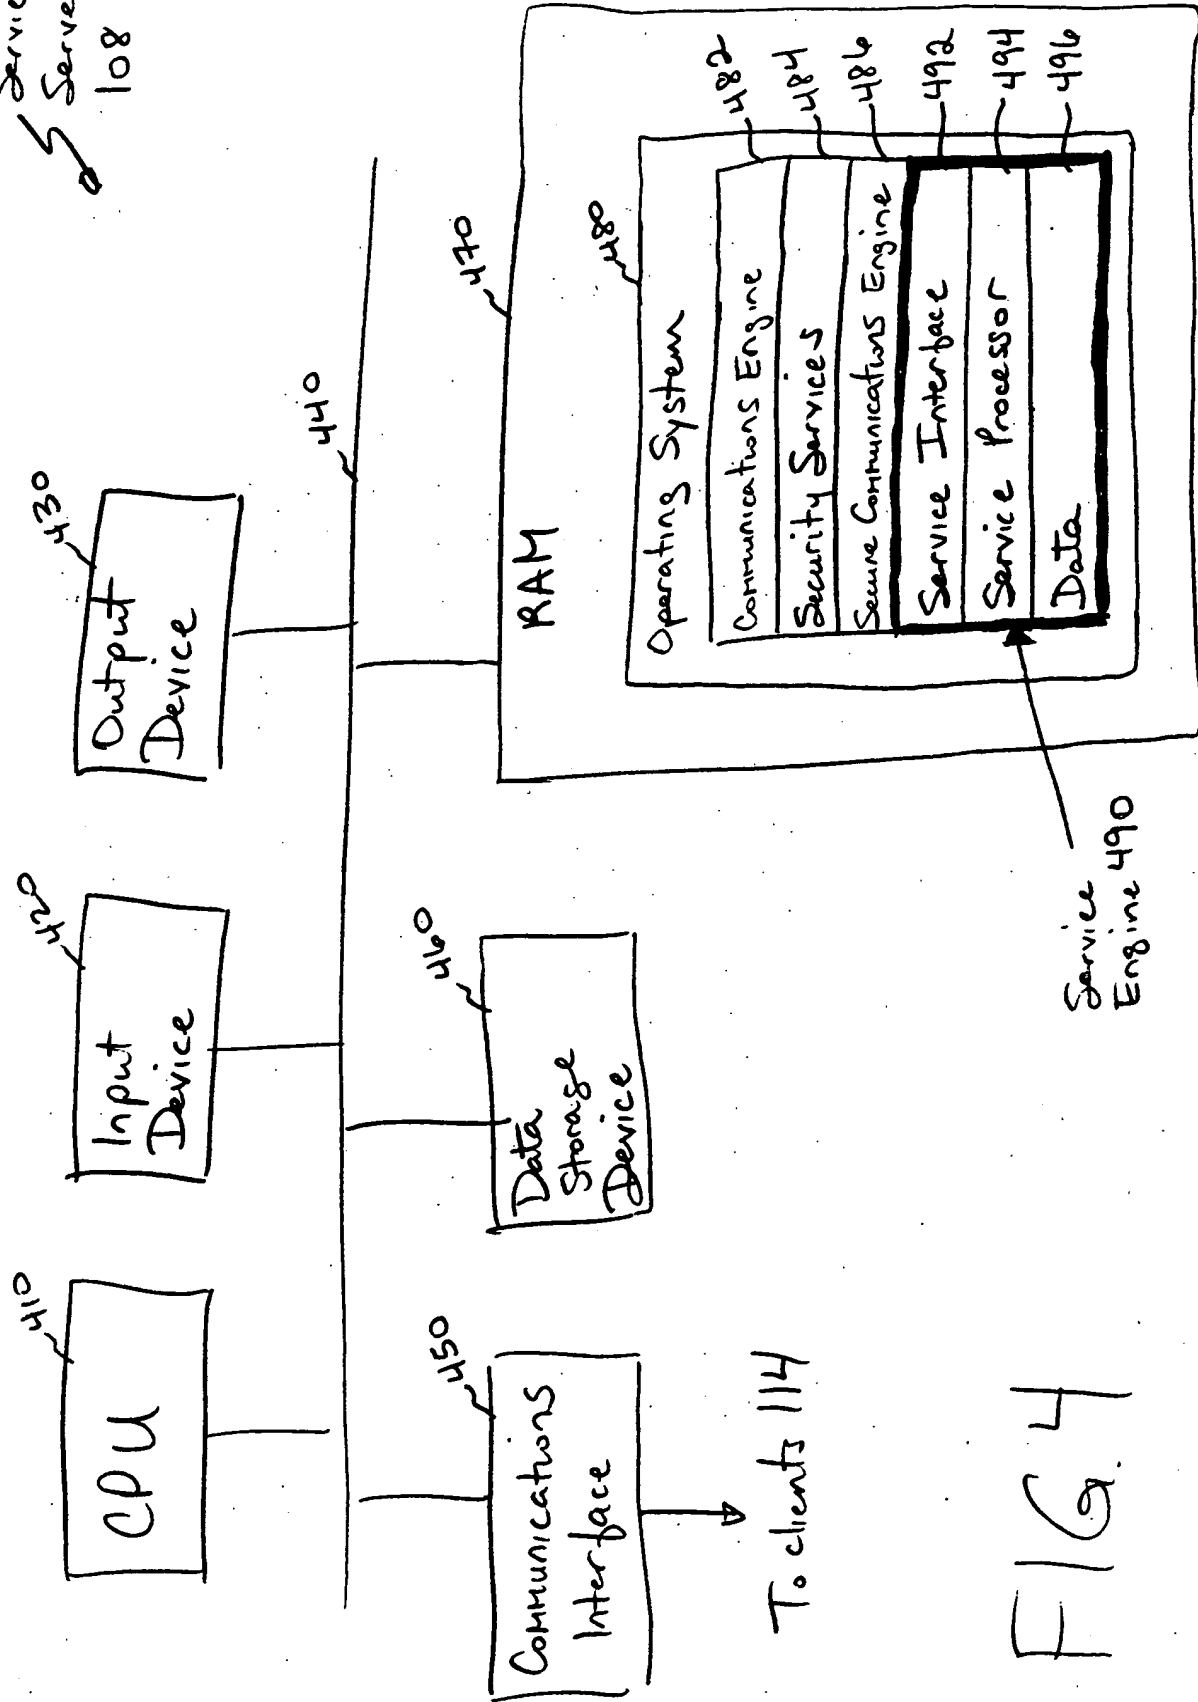 Service
Serve
108
410
CPU
420
Input
Device
430
Output
Device
440
450
Communications
Interface
To clients 114
460
Data
Storage
Device
470
RAM
480
Operating System
Communications Engine
482
Security Services
484
Secure Communications Engine
486
Service Interface
492
Service Processor
494
Data
496
Service
Engine 490
FIG. 4